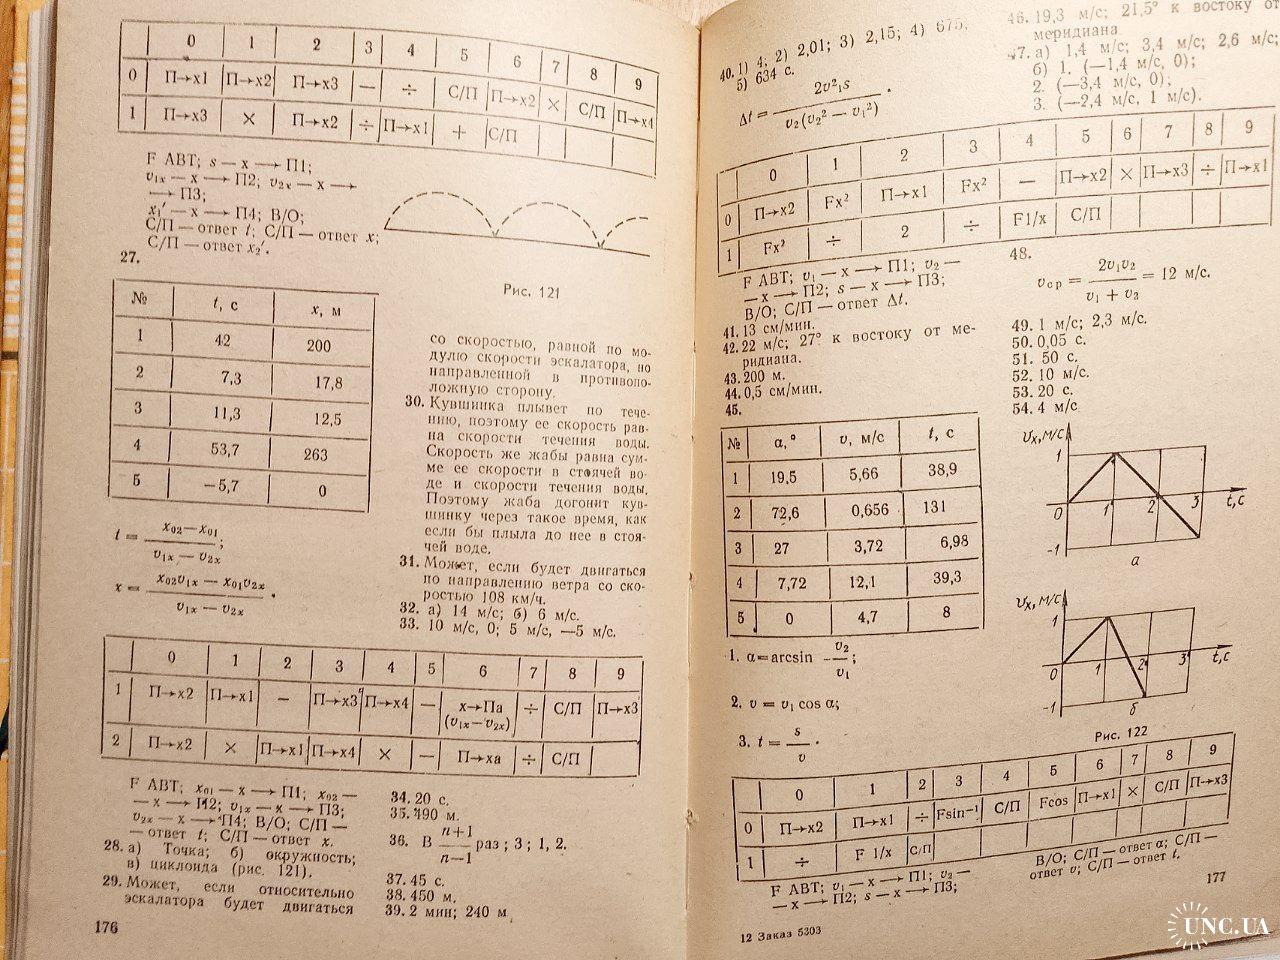 0 1 2 3 4 5 6 7 8 9
0 П→x1 П→x2 П→x3 — ÷ С/П П→x2 × С/П П→x4
1 П→x3 × П→x2 ÷ П→x1 + С/П
F АВТ; s — x → П1;
v₁ₓ — x → П2; v₂ₓ — x →
→ П3;
x₁′ — x → П4; В/О;
С/П — ответ t; С/П — ответ x;
С/П — ответ x₂′.
27.
№ t, с x, м
1 42 200
2 7,3 17,8
3 11,3 12,5
4 53,7 263
5 —5,7 0
t = (x₀₂—x₀₁)/(v₁ₓ — v₂ₓ);
x = (x₀₂v₁ₓ — x₀₁v₂ₓ)/(v₁ₓ — v₂ₓ).
Рис. 121
со скоростью, равной по мо-
дулю скорости эскалатора, но
направленной в противопо-
ложную сторону.
30. Кувшинка плывет по тече-
нию, поэтому ее скорость рав-
на скорости течения воды.
Скорость же жабы равна сум-
ме ее скорости в стоячей во-
де и скорости течения воды.
Поэтому жаба догонит кув-
шинку через такое время, как
если бы плыла до нее в стоя-
чей воде.
31. Может, если будет двигаться
по направлению ветра со ско-
ростью 108 км/ч.
32. а) 14 м/с; б) 6 м/с.
33. 10 м/с, 0; 5 м/с, —5 м/с.
0 1 2 3 4 5 6 7 8 9
1 П→x2 П→x1 — П→x3 П→x4 — x→Па (v₁ₓ—v₂ₓ) ÷ С/П П→x3
2 П→x2 × П→x1 П→x4 × — П→xа ÷ С/П
F АВТ; x₀₁ — x → П1; x₀₂ —
— x → П2; v₁ₓ — x → П3;
v₂ₓ — x → П4; В/О; С/П —
— ответ t; С/П — ответ x.
28. а) Точка; б) окружность;
в) циклоида (рис. 121).
29. Может, если относительно
эскалатора будет двигаться
34. 20 с.
35. 490 м.
36. В (n+1)/(n—1) раз; 3; 1, 2.
37. 45 с.
38. 450 м.
39. 2 мин; 240 м
176
40. 1) 4; 2) 2,01; 3) 2,15; 4) 675;
5) 634 с.
Δt = 2v²₁s/(v₂(v₂² — v₁²)).
46. 19,3 м/с; 21,5° к востоку от
меридиана
47. а) 1,4 м/с; 3,4 м/с; 2,6 м/с;
б) 1. (—1,4 м/с, 0);
2. (—3,4 м/с, 0);
3. (—2,4 м/с, 1 м/с).
0 1 2 3 4 5 6 7 8 9
0 П→x2 Fx² П→x1 Fx² — П→x2 × П→x3 ÷ П→x1
1 Fx² ÷ 2 ÷ F1/x С/П
F АВТ; v₁ — x → П1; v₂ —
— x → П2; s — x → П3;
В/О; С/П — ответ Δt.
41. 13 см/мин.
42. 22 м/с; 27° к востоку от ме-
ридиана.
43. 200 м.
44. 0,5 см/мин.
45.
№ α,° v, м/с t, с
1 19,5 5,66 38,9
2 72,6 0,656 131
3 27 3,72 6,98
4 7,72 12,1 39,3
5 0 4,7 8
1. α=arcsin v₂/v₁;
2. v = v₁ cos α;
3. t = s/v.
48.
vср = 2v₁v₂/(v₁ + v₂) = 12 м/с.
49. 1 м/с; 2,3 м/с.
50. 0,05 с.
51. 50 с.
52. 10 м/с.
53. 20 с.
54. 4 м/с
vₓ, м/с
1
0 1 2 3 t, с
-1
а
vₓ, м/с
1
0 1 2 3 t, с
-1
б
Рис. 122
0 1 2 3 4 5 6 7 8 9
0 П→x2 П→x1 ÷ Fsin⁻¹ С/П Fcos П→x1 × С/П П→x3
1 ÷ F 1/x С/П
F АВТ; v₁ — x → П1; v₂ —
— x → П2; s — x → П3;
В/О; С/П — ответ α; С/П —
ответ v; С/П — ответ t.
177
12 Заказ 5303
UNC.UA